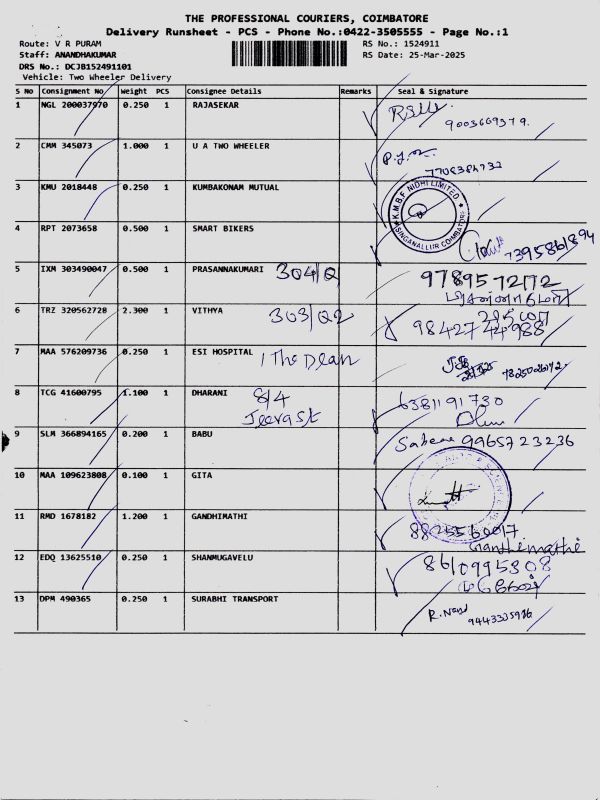 THE PROFESSIONAL COURIERS, COIMBATORE
Delivery Runsheet - PCS - Phone No.:0422-3505555 - Page No.:1
Route: V R PURAM RS No.: 1524911
Staff: ANANDHAKUMAR RS Date: 25-Mar-2025
DRS No.: DCJB152491101
Vehicle: Two Wheeler Delivery
S No Consignment No Weight PCS Consignee Details Remarks Seal & Signature
1 NGL 200037970 0.250 1 RAJASEKAR
9003669379.
2 CMM 345073 1.000 1 U A TWO WHEELER
7708384732
3 KMU 2018448 0.250 1 KUMBAKONAM MUTUAL
K.M.B.F NIDHI LIMITED
SINGANALLUR COIMBATORE
4 RPT 2073658 0.500 1 SMART BIKERS
7395861894
5 IXM 303490047 0.500 1 PRASANNAKUMARI 304/Q
9789572172
6 TRZ 320562728 2.300 1 VITHYA 303/Q2
9842744988
7 MAA 576209736 0.250 1 ESI HOSPITAL / The Dean
8 TCG 41600795 1.100 1 DHARANI 8/4
Jeeva St
6381191730
9 SLM 366894165 0.200 1 BABU
9965723236
10 MAA 109623808 0.100 1 GITA
11 RMD 1678182 1.200 1 GANDHIMATHI
8825560017
Gandhimathi
12 EDQ 13625510 0.250 1 SHANMUGAVELU
8610995308
13 DPM 490365 0.250 1 SURABHI TRANSPORT
9443335936